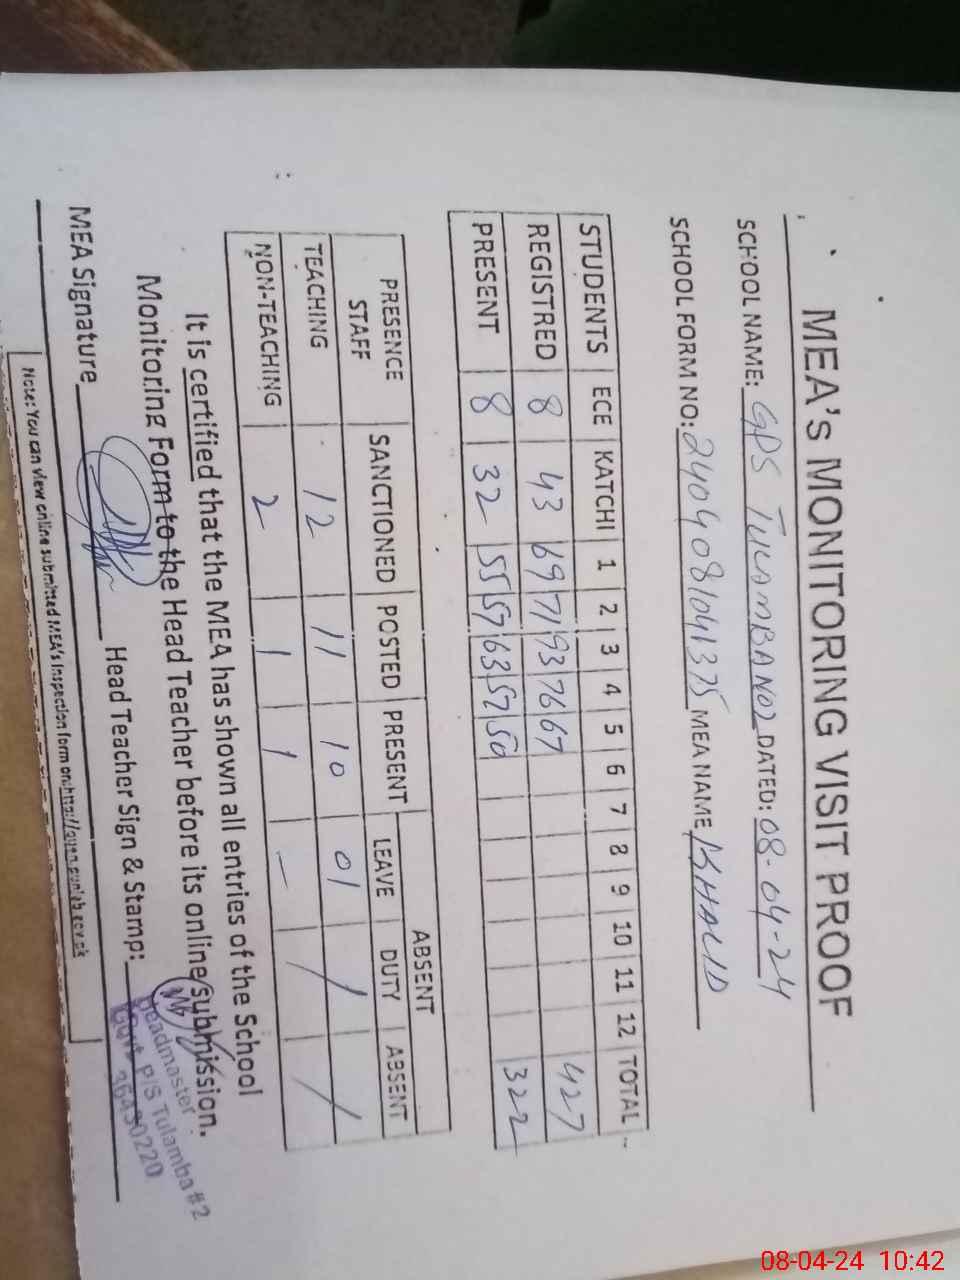 MEA'S MONITORING VISIT PROOF
SCHOOL NAME: GPS TULAMBA NO2 DATED: 08-04-24
SCHOOL FORM NO: 2404081041375 MEA NAME KHALID
STUDENTS ECE KATCHI 1 2 3 4 5 6 7 8 9 10 11 12 TOTAL
REGISTRED 8 43 69 71 93 76 67 427
PRESENT 8 32 55 57 63 57 50 322
PRESENCE STAFF SANCTIONED POSTED PRESENT ABSENT
LEAVE DUTY ABSENT
TEACHING 12 11 10 01 / /
NON-TEACHING 2 1 1 –
It is certified that the MEA has shown all entries of the School
Monitoring Form to the Head Teacher before its online submission.
MEA Signature Head Teacher Sign & Stamp:
Headmaster
Govt P/S Tulamba #2
36430220
Note: You can view online submitted MEA's Inspection form on:
08-04-24 10:42